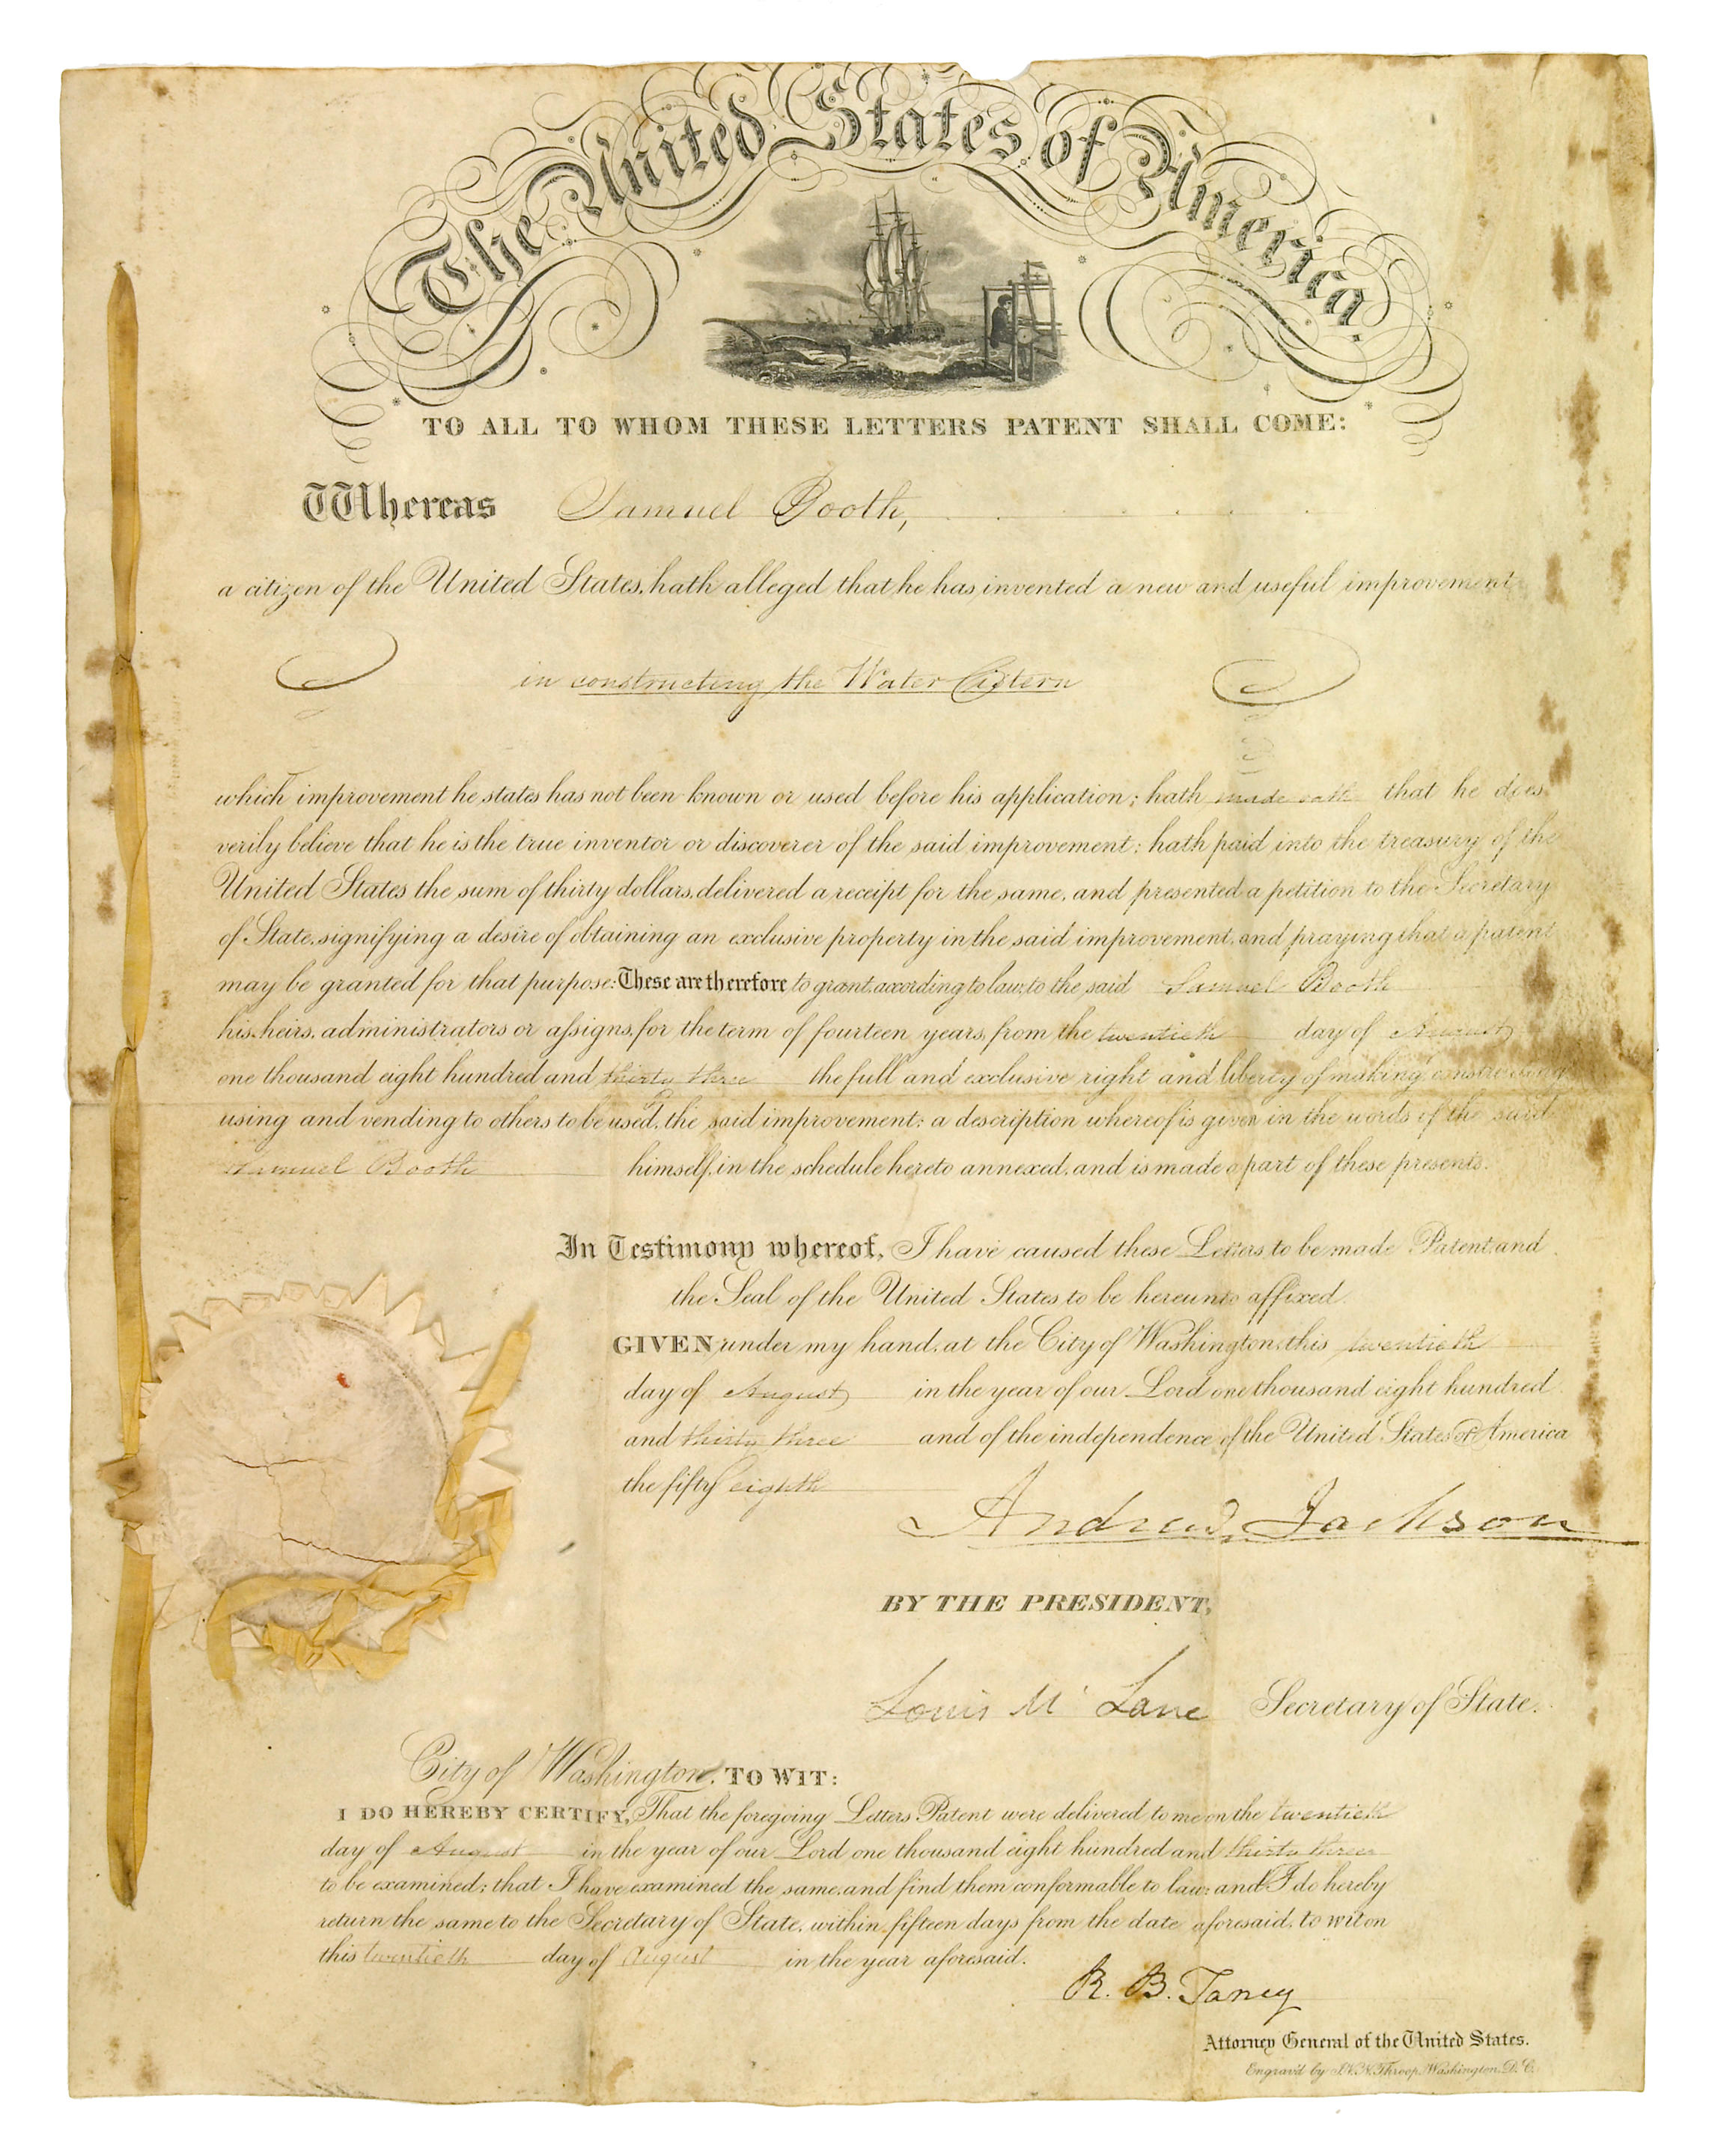 The United States of America
TO ALL TO WHOM THESE LETTERS PATENT SHALL COME:
Whereas Samuel Booth,
a citizen of the United States, hath alleged that he has invented a new and useful improvement
in constructing the Water Cistern
which improvement he states has not been known or used before his application; hath made oath that he does
verily believe that he is the true inventor or discoverer of the said improvement; hath paid into the treasury of the
United States the sum of thirty dollars, delivered a receipt for the same, and presented a petition to the Secretary
of State, signifying a desire of obtaining an exclusive property in the said improvement, and praying that a patent
may be granted for that purpose: These are therefore to grant, according to law, to the said Samuel Booth
his heirs, administrators or assigns, for the term of fourteen years, from the twentieth day of August
one thousand eight hundred and thirty three the full and exclusive right and liberty of making, constructing,
using and vending to others to be used, the said improvement; a description whereof is given in the words of the said
Samuel Booth himself, in the schedule hereto annexed, and is made a part of these presents.
In Testimony whereof, I have caused these Letters to be made Patent, and
the Seal of the United States to be hereunto affixed.
GIVEN under my hand, at the City of Washington, this twentieth
day of August in the year of our Lord one thousand eight hundred
and thirty three and of the independence of the United States of America
the fifty eighth
Andrew Jackson
BY THE PRESIDENT,
Louis McLane Secretary of State.
City of Washington, TO WIT:
I DO HEREBY CERTIFY, That the foregoing Letters Patent were delivered to me on the twentieth
day of August in the year of our Lord one thousand eight hundred and thirty three
to be examined; that I have examined the same, and find them conformable to law; and I do hereby
return the same to the Secretary of State, within fifteen days from the date aforesaid, to wit on
this twentieth day of August in the year aforesaid.
R. B. Taney
Attorney General of the United States.
Engrav'd by D. W. N. Throop, Washington, D. C.